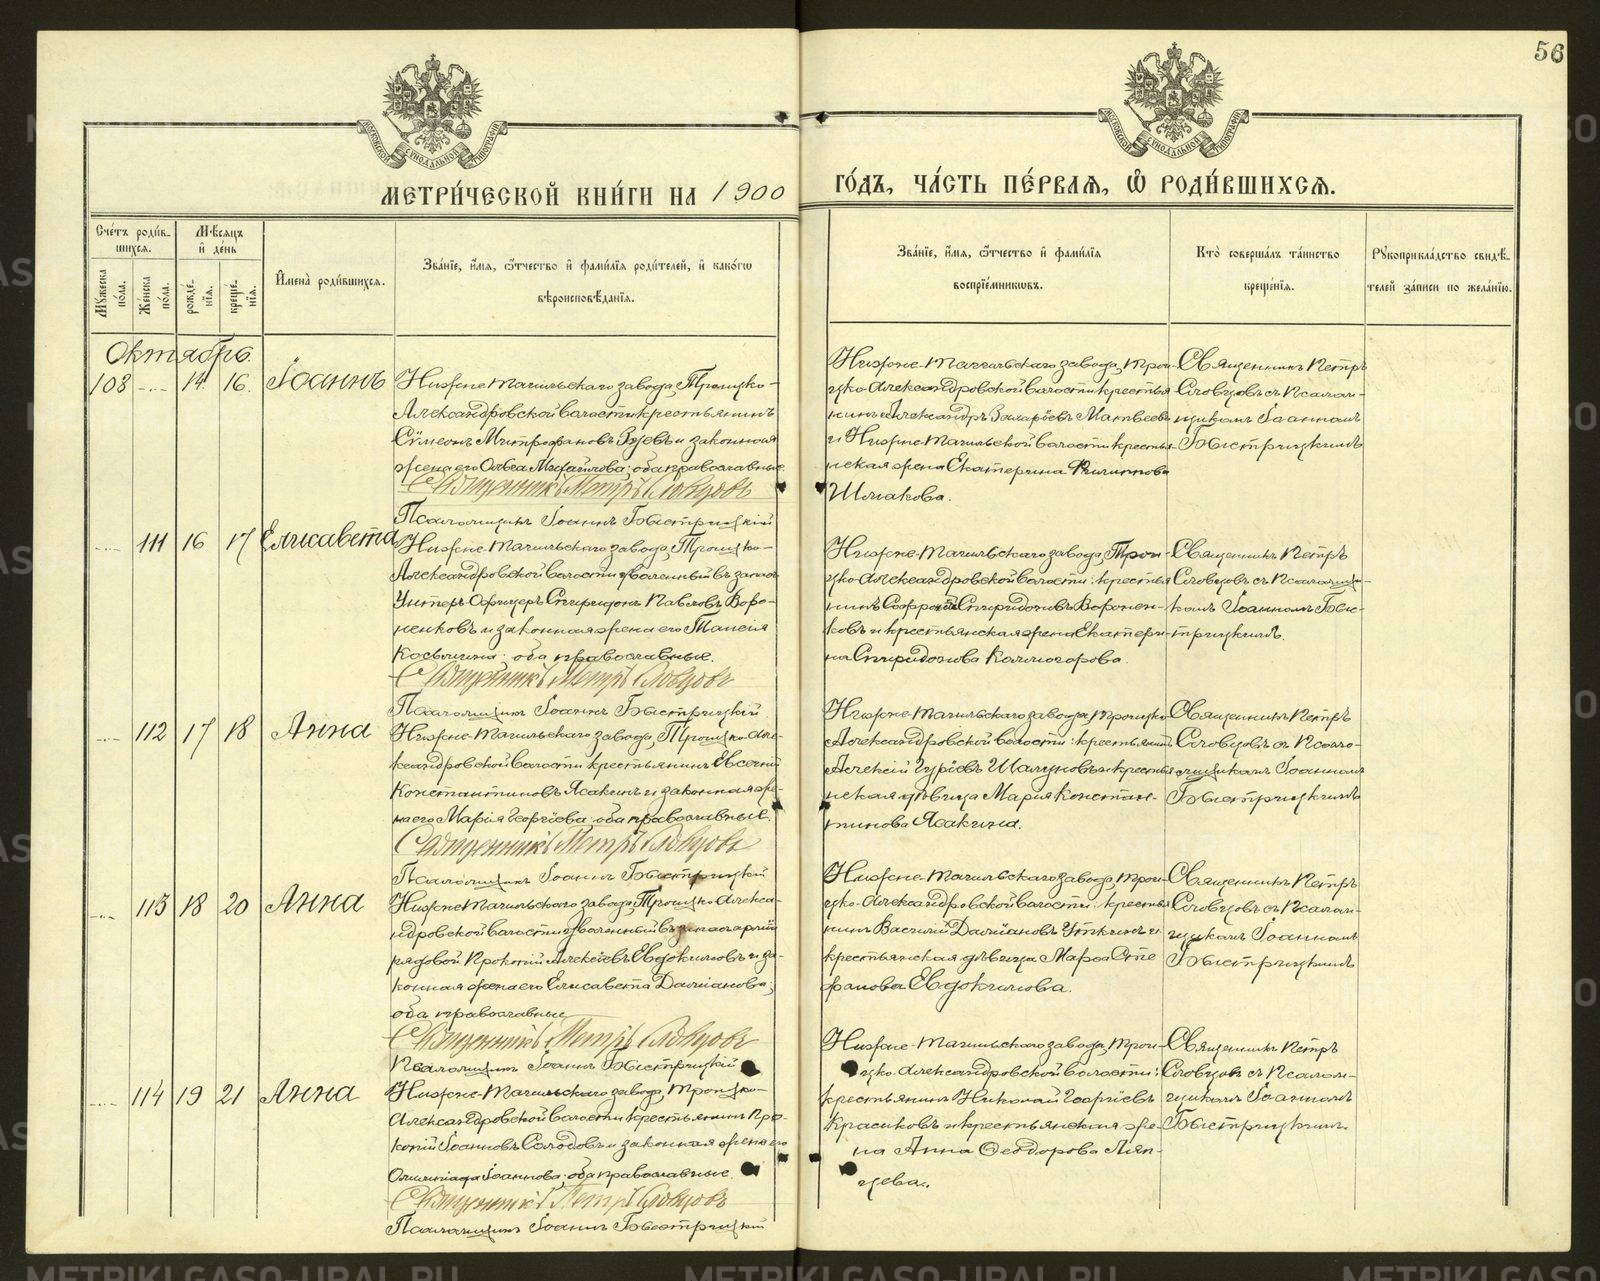 56
МОСКОВСКОЙ СУНОДАЛЬНОЙ ТИПОГРАФІИ
МОСКОВСКОЙ СУНОДАЛЬНОЙ ТИПОГРАФІИ
МЕТРИ́ЧЕСКОЙ КНИ́ГИ НА 1900
ГО́ДЪ, ЧА́СТЬ ПЕ́РВАѦ, Ѡ҆ РОДИ́ВШИХСѦ.
Сче́тъ роди́в-
шихся.
Мѣ́сяцъ
и҆ де́нь
Мꙋжеска по́ла.
Же́нска по́ла.
рожде́-
нїя.
креще́-
нїя.
И҆мена̀ роди́вшихся.
Зва́нїе, и҆́мя, ѻ҆́тчество и҆ фами́лїя роди́телей, и҆ како́гѡ
вѣроисповѣ́данїя.
Зва́нїе, и҆́мя, ѻ҆́тчество и҆ фами́лїя
воспрїе́мникѡвъ.
Кто̀ соверша́лъ та́инство
креще́нїя.
Рꙋкоприкла́дство свидѣ́-
телей за́писи по жела́нїю.
Октябрь.
108 14 16. Іоаннъ
Нижне-Тагильскаго завода, Троицко-
Александровской волости крестьянинъ
Сѵмеонъ Митрофановъ Зуевъ и законная
жена его Ольга Михайлова; оба православные.
Священникъ Петръ Словцовъ
Псаломщикъ Іоаннъ Быстрицкій
Нижне-Тагильскаго завода, Трои-
цко-Александровской волости крестья-
нинъ Александръ Захаріевъ Матвеевъ
и Нижне-Тагильской волости крестья-
нская жена Екатерина Филиппова
Шмакова.
Священникъ Петръ
Словцовъ съ Псалом-
щикомъ Іоанномъ
Быстрицкимъ
111 16 17 Елисавета
Нижне-Тагильскаго завода, Троицко-
Александровской волости уволенный въ запасъ
Унтеръ-Офицеръ Спиридонъ Павловъ Воро-
ненковъ и законная жена его Таисія
Косьмина; оба православные.
Священникъ Петръ Словцовъ
Псаломщикъ Іоаннъ Быстрицкій
Нижне-Тагильскаго завода, Трои-
цко-Александровской волости: крестья-
нинъ Спиридоновъ Воронен-
ковъ и крестьянская жена Екатери-
на Спиридонова Колмогорова.
Священникъ Петръ
Словцовъ съ Псаломщи-
комъ Іоанномъ Быс-
трицкимъ.
112 17 18 Анна
Нижне-Тагильскаго завода, Троицко-Але-
ксандровской волости крестьянинъ Евсений
Константиновъ Ясакинъ и законная же-
на его Марія Георгіева; оба православные.
Священникъ Петръ Словцовъ
Псаломщикъ Іоаннъ Быстрицкій
Нижне-Тагильскаго завода, Троицко-
Александровской волости: крестьянинъ
Алексій Гуріевъ Шалуновъ и крестья-
нская дѣвица Марія Констан-
тинова Ясакина.
Священникъ Петръ
Словцовъ съ Псало-
мщикомъ Іоанномъ
Быстрицкимъ
113 18 20 Анна
Нижне-Тагильскаго завода, Троицко-Алекса-
ндровской волости уволенный въ
рядовой Прокопій Алексіевъ Евдокимовъ и за-
конная жена его Елисавета Даміанова;
оба православные
Священникъ Петръ Словцовъ
Псаломщикъ Іоаннъ Быстрицкій
Нижне-Тагильскаго завода, Трои-
цко-Александровской волости: крестья-
нинъ Василій Даміановъ Уткинъ и
крестьянская дѣвица Марѳа Сте-
фанова Евдокимова.
Священникъ Петръ
Словцовъ съ Псалом-
щикомъ Іоанномъ
Быстрицкимъ
114 19 21 Анна
Нижне-Тагильскаго завода, Троицко-
Александровской волости крестьянинъ Про-
копій Іоанновъ Солодовъ и законная жена его
Олимпіада Іоаннова; оба православные.
Священникъ Петръ Словцовъ
Псаломщикъ Іоаннъ Быстрицкій
Нижне-Тагильскаго завода, Трои-
цко-Александровской волости:
крестьянинъ Николай Георгіевъ
Красиковъ и крестьянская же-
на Анна Ѳеодорова Ляп-
цева.
Священникъ Петръ
Словцовъ съ Псалом-
щикомъ Іоанномъ
Быстрицкимъ.
METRIKI.GASO-URAL.RU